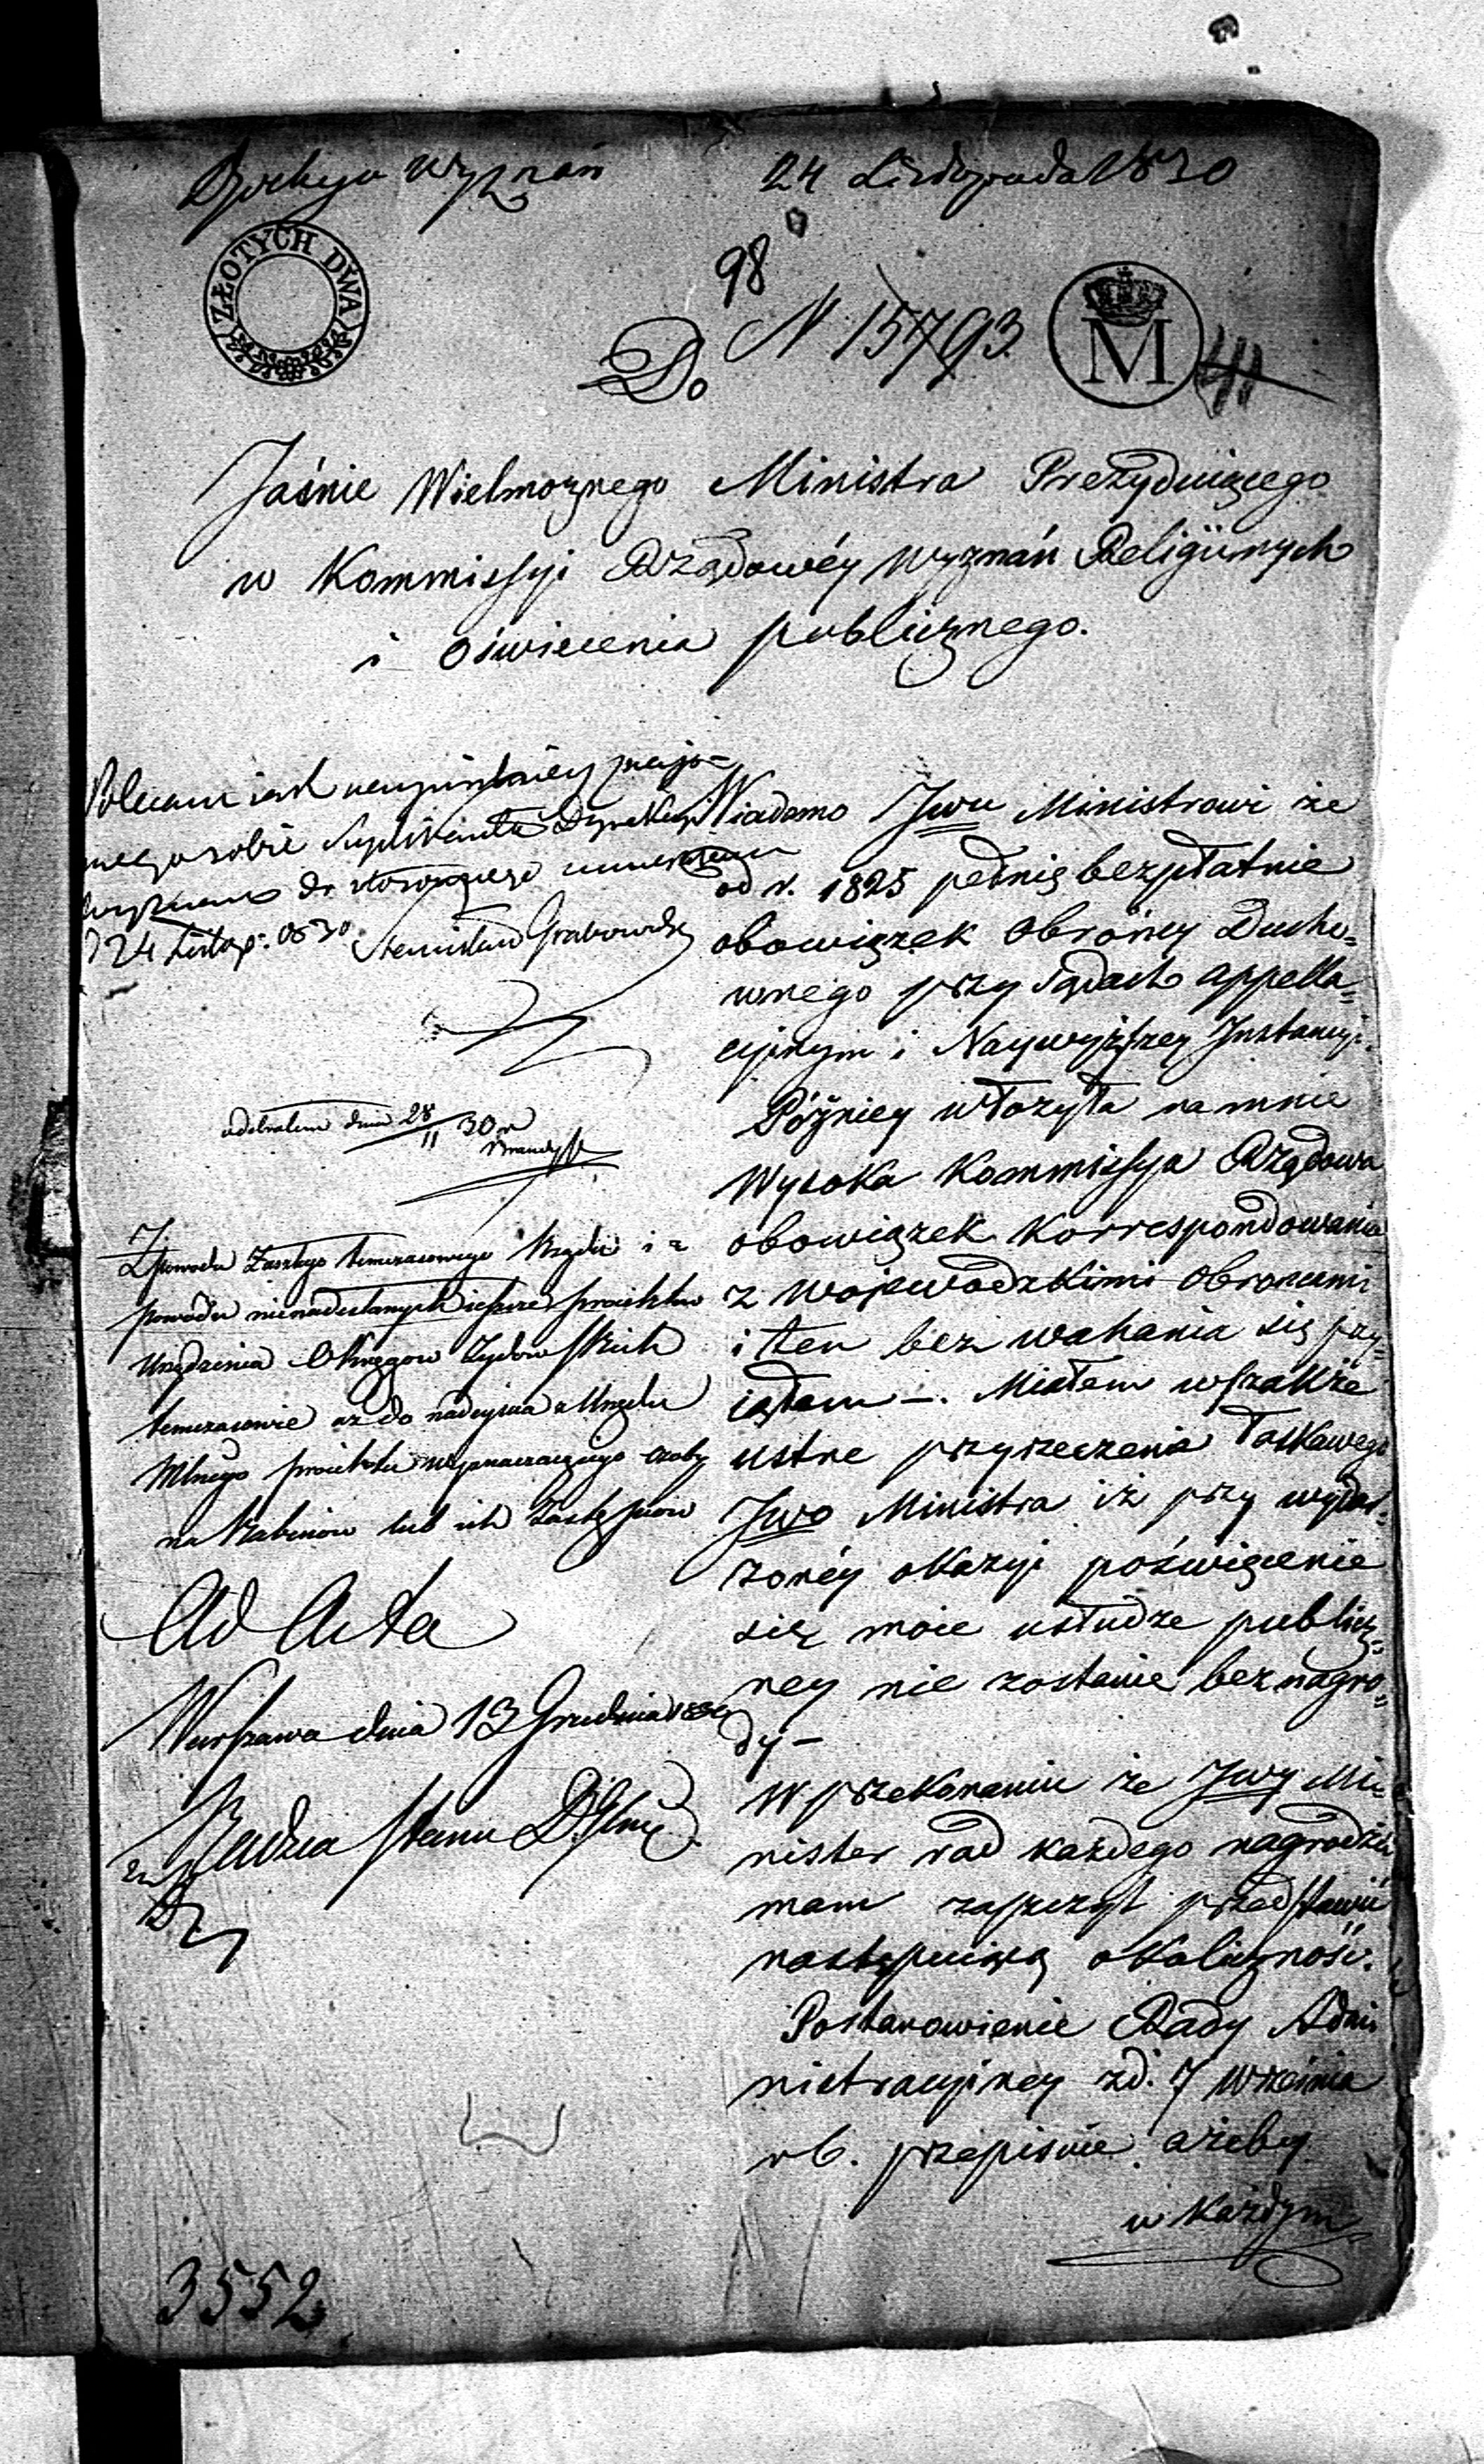 Dyrekcya Wyznań 24 Listopada 1830
ZŁOTYCH DWA
98
N 15793.
M
Do
Jaśnie Wielmożnego Ministra Prezyduiącego
w Kommissyi Rządowéy Wyznań Religiinych
i Oświecenia publicznego.
Polecam iak
sobie Suplikanta Dyrekcyi
Wyznań do stosownego umieszczenia
d 24 Listop. 1830 Stanisław Grabowski
odebrałem dnia 28/11 30 r
Z powodu zaszłego temczasowego Rządu i z
powodu nienadesłanych ieszcze proiektów
urządzenia Okręgów Żydowskich
temczasowie aż do nadeyścia z Urzędu
Mlnego proiektu wyznaczaiącego osoby
na Rabinów lub ich Zastępców
Ad Acta
Warszawa dnia 13 Grudnia 1830
Radca Stanu D. Jlny
Wiadomo Jwu Ministrowi że
od r. 1825 pełnię bezpłatnie
obowiązek Obrońcy Ducho=
wnego przy Sądach appella=
cyjnym i Naywyższey Instancyi.
Późniey włożyła na mnie
Wysoka Kommissya Rządowa
obowiązek Korrespondowania
z Wojewodzkimi Obroncami
i ten bez wahania się przy=
iąłem —. Miałem wszakże
ustne przyrzeczenia Łaskawego
Jwo Ministra iż przy wydar=
zonéy okazyi poświęcenie
się moie usłudze publicz=
ney nie zostanie bez nagro=
dy —
W przekonaniu że Jwy Mi=
nister rad każdego nagrodzić
mam zaszczyt przedstawić
następuiącą okoliczność.
Postanowienie Rady Admi
nistracyjney z d. 7 Września
r b. przepisuie ażeby
w każdym
3552